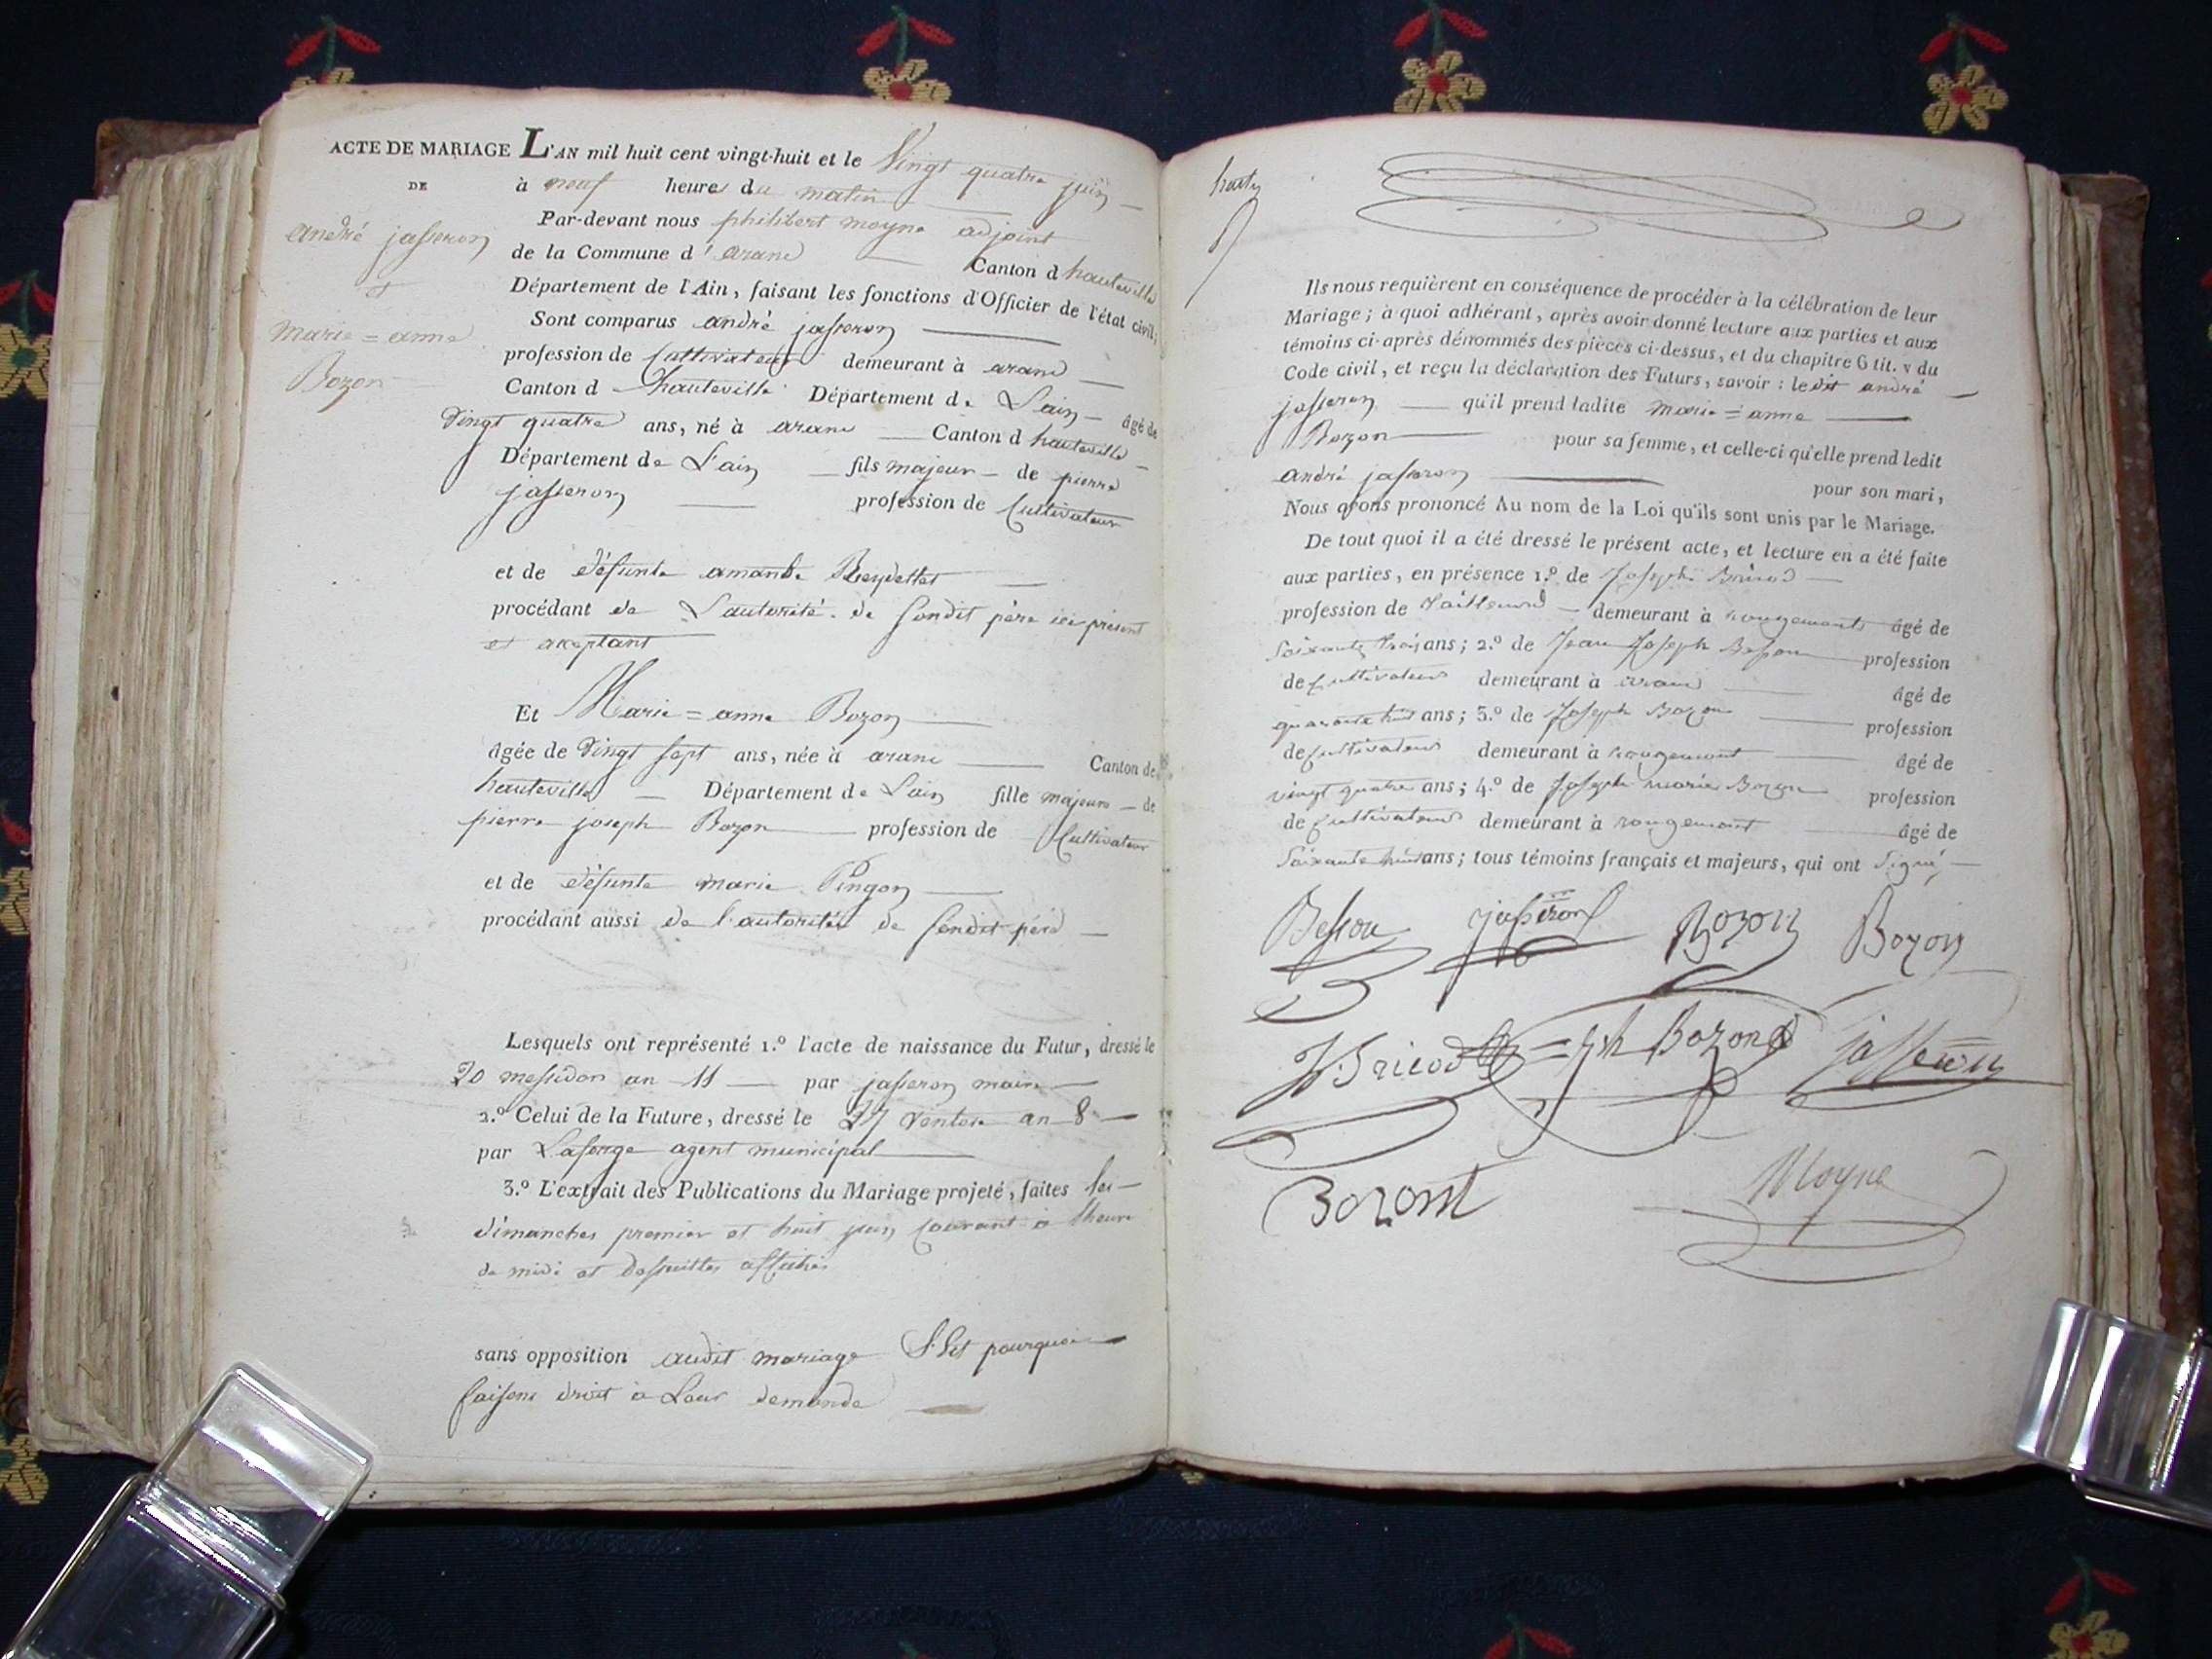 ACTE DE MARIAGE
DE
andré jasseron
et
marie = anne
Bozon
L'AN mil huit cent vingt-huit et le Vingt quatre juin
à neuf heures du matin
Par-devant nous philibert moyne adjoint
de la Commune d'arane Canton d hauteville
Département de l'Ain, faisant les fonctions d'Officier de l'état civil;
Sont comparus andré jasseron
profession de Cultivateur demeurant à arane
Canton d hauteville Département de L'ain âgé de
Vingt quatre ans, né à arane Canton d hauteville
Département de L'ain fils majeur de pierre
jasseron profession de Cultivateur
et de défunte amande Reydellet
procédant de L'autorité de sondit père ici présent
et aceptant
Et Marie = anne Bozon
âgée de Vingt sept ans, née à arane Canton de
hauteville Département de L'ain fille majeure de
pierre joseph Bozon profession de Cultivateur
et de défunte marie Pingon
procédant aussi de l'autorité de sondit père
Lesquels ont représenté 1.º l'acte de naissance du Futur, dressé le
20 messidor an 11 par jasseron maire
2.º Celui de la Future, dressé le 27 Ventose an 8
par Laforge agent municipal
3.º L'extrait des Publications du Mariage projeté, faites les
dimanches premier et huit juin Courant à l'heure
de midi et desuittes affichés
sans opposition audit mariage C'est pourquoi
faisons droit à Leur demande
Ils nous requièrent en conséquence de procéder à la célébration de leur
Mariage; à quoi adhérant, après avoir donné lecture aux parties et aux
témoins ci-après dénommés des pièces ci-dessus, et du chapitre 6 tit. v du
Code civil, et reçu la déclaration des Futurs, savoir : ledit andré
jasseron qu'il prend ladite marie = anne
Bozon pour sa femme, et celle-ci qu'elle prend ledit
andré jasseron pour son mari,
Nous avons prononcé Au nom de la Loi qu'ils sont unis par le Mariage.
De tout quoi il a été dressé le présent acte, et lecture en a été faite
aux parties, en présence 1.º de Joseph Bricod
profession de tailleur demeurant à rougemont âgé de
soixante trois ans; 2.º de Jean Joseph Besson profession
de Cultivateur demeurant à arane âgé de
quarante huit ans; 3.º de Joseph Bozon profession
de Cultivateur demeurant à rougemont âgé de
vingt quatre ans; 4.º de Joseph marie Bozon profession
de Cultivateur demeurant à rougemont âgé de
soixante huit ans; tous témoins français et majeurs, qui ont signé
Besson jasseron Bozon Bozon
J. Bricod Jh Bozon jasseron
Bozont Moyne